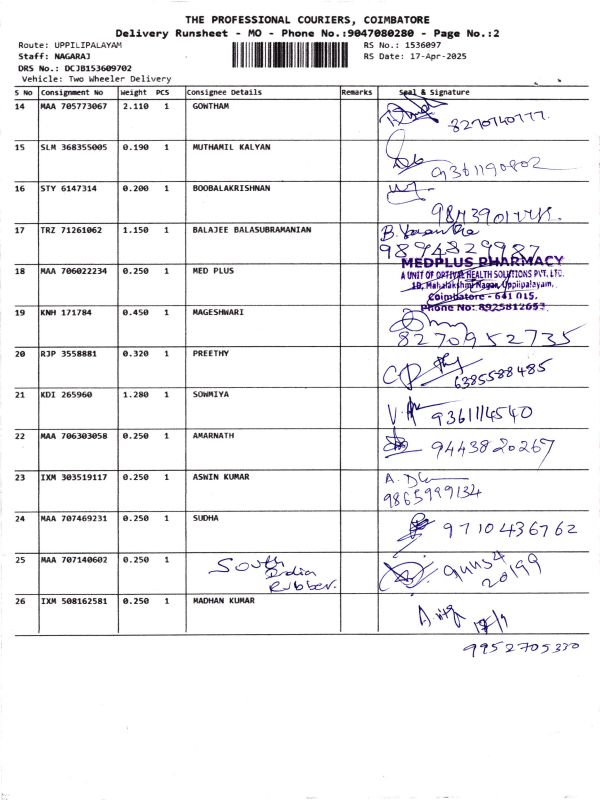 THE PROFESSIONAL COURIERS, COIMBATORE
Delivery Runsheet - MO - Phone No.:9047080280 - Page No.:2
Route: UPPILIPALAYAM RS No.: 1536097
Staff: NAGARAJ RS Date: 17-Apr-2025
DRS No.: DCJB153609702
Vehicle: Two Wheeler Delivery
S No Consignment No Weight PCS Consignee Details Remarks Seal & Signature
14 MAA 705773067 2.110 1 GOWTHAM
8270740777.
15 SLM 368355005 0.190 1 MUTHAMIL KALYAN
9361190802
16 STY 6147314 0.200 1 BOOBALAKRISHNAN
17 TRZ 71261062 1.150 1 BALAJEE BALASUBRAMANIAN
9894829987
MEDPLUS PHARMACY
18 MAA 706022234 0.250 1 MED PLUS A UNIT OF OPTIVAL HEALTH SOLUTIONS PVT. LTC.
1D, Mahalakshmi Nagar, Uppilipalayam,
Coimbatore - 641 015.
Phone No: 8925812653
19 KNH 171784 0.450 1 MAGESHWARI
8270952735
20 RJP 3558881 0.320 1 PREETHY
6385588485
21 KDI 265960 1.280 1 SOWMIYA
9361114540
22 MAA 706303058 0.250 1 AMARNATH
9443820267
23 IXM 303519117 0.250 1 ASWIN KUMAR
9865999134
24 MAA 707469231 0.250 1 SUDHA
9710436762
25 MAA 707140602 0.250 1 South
India
Rubber.
20199
26 IXM 508162581 0.250 1 MADHAN KUMAR
9952705330